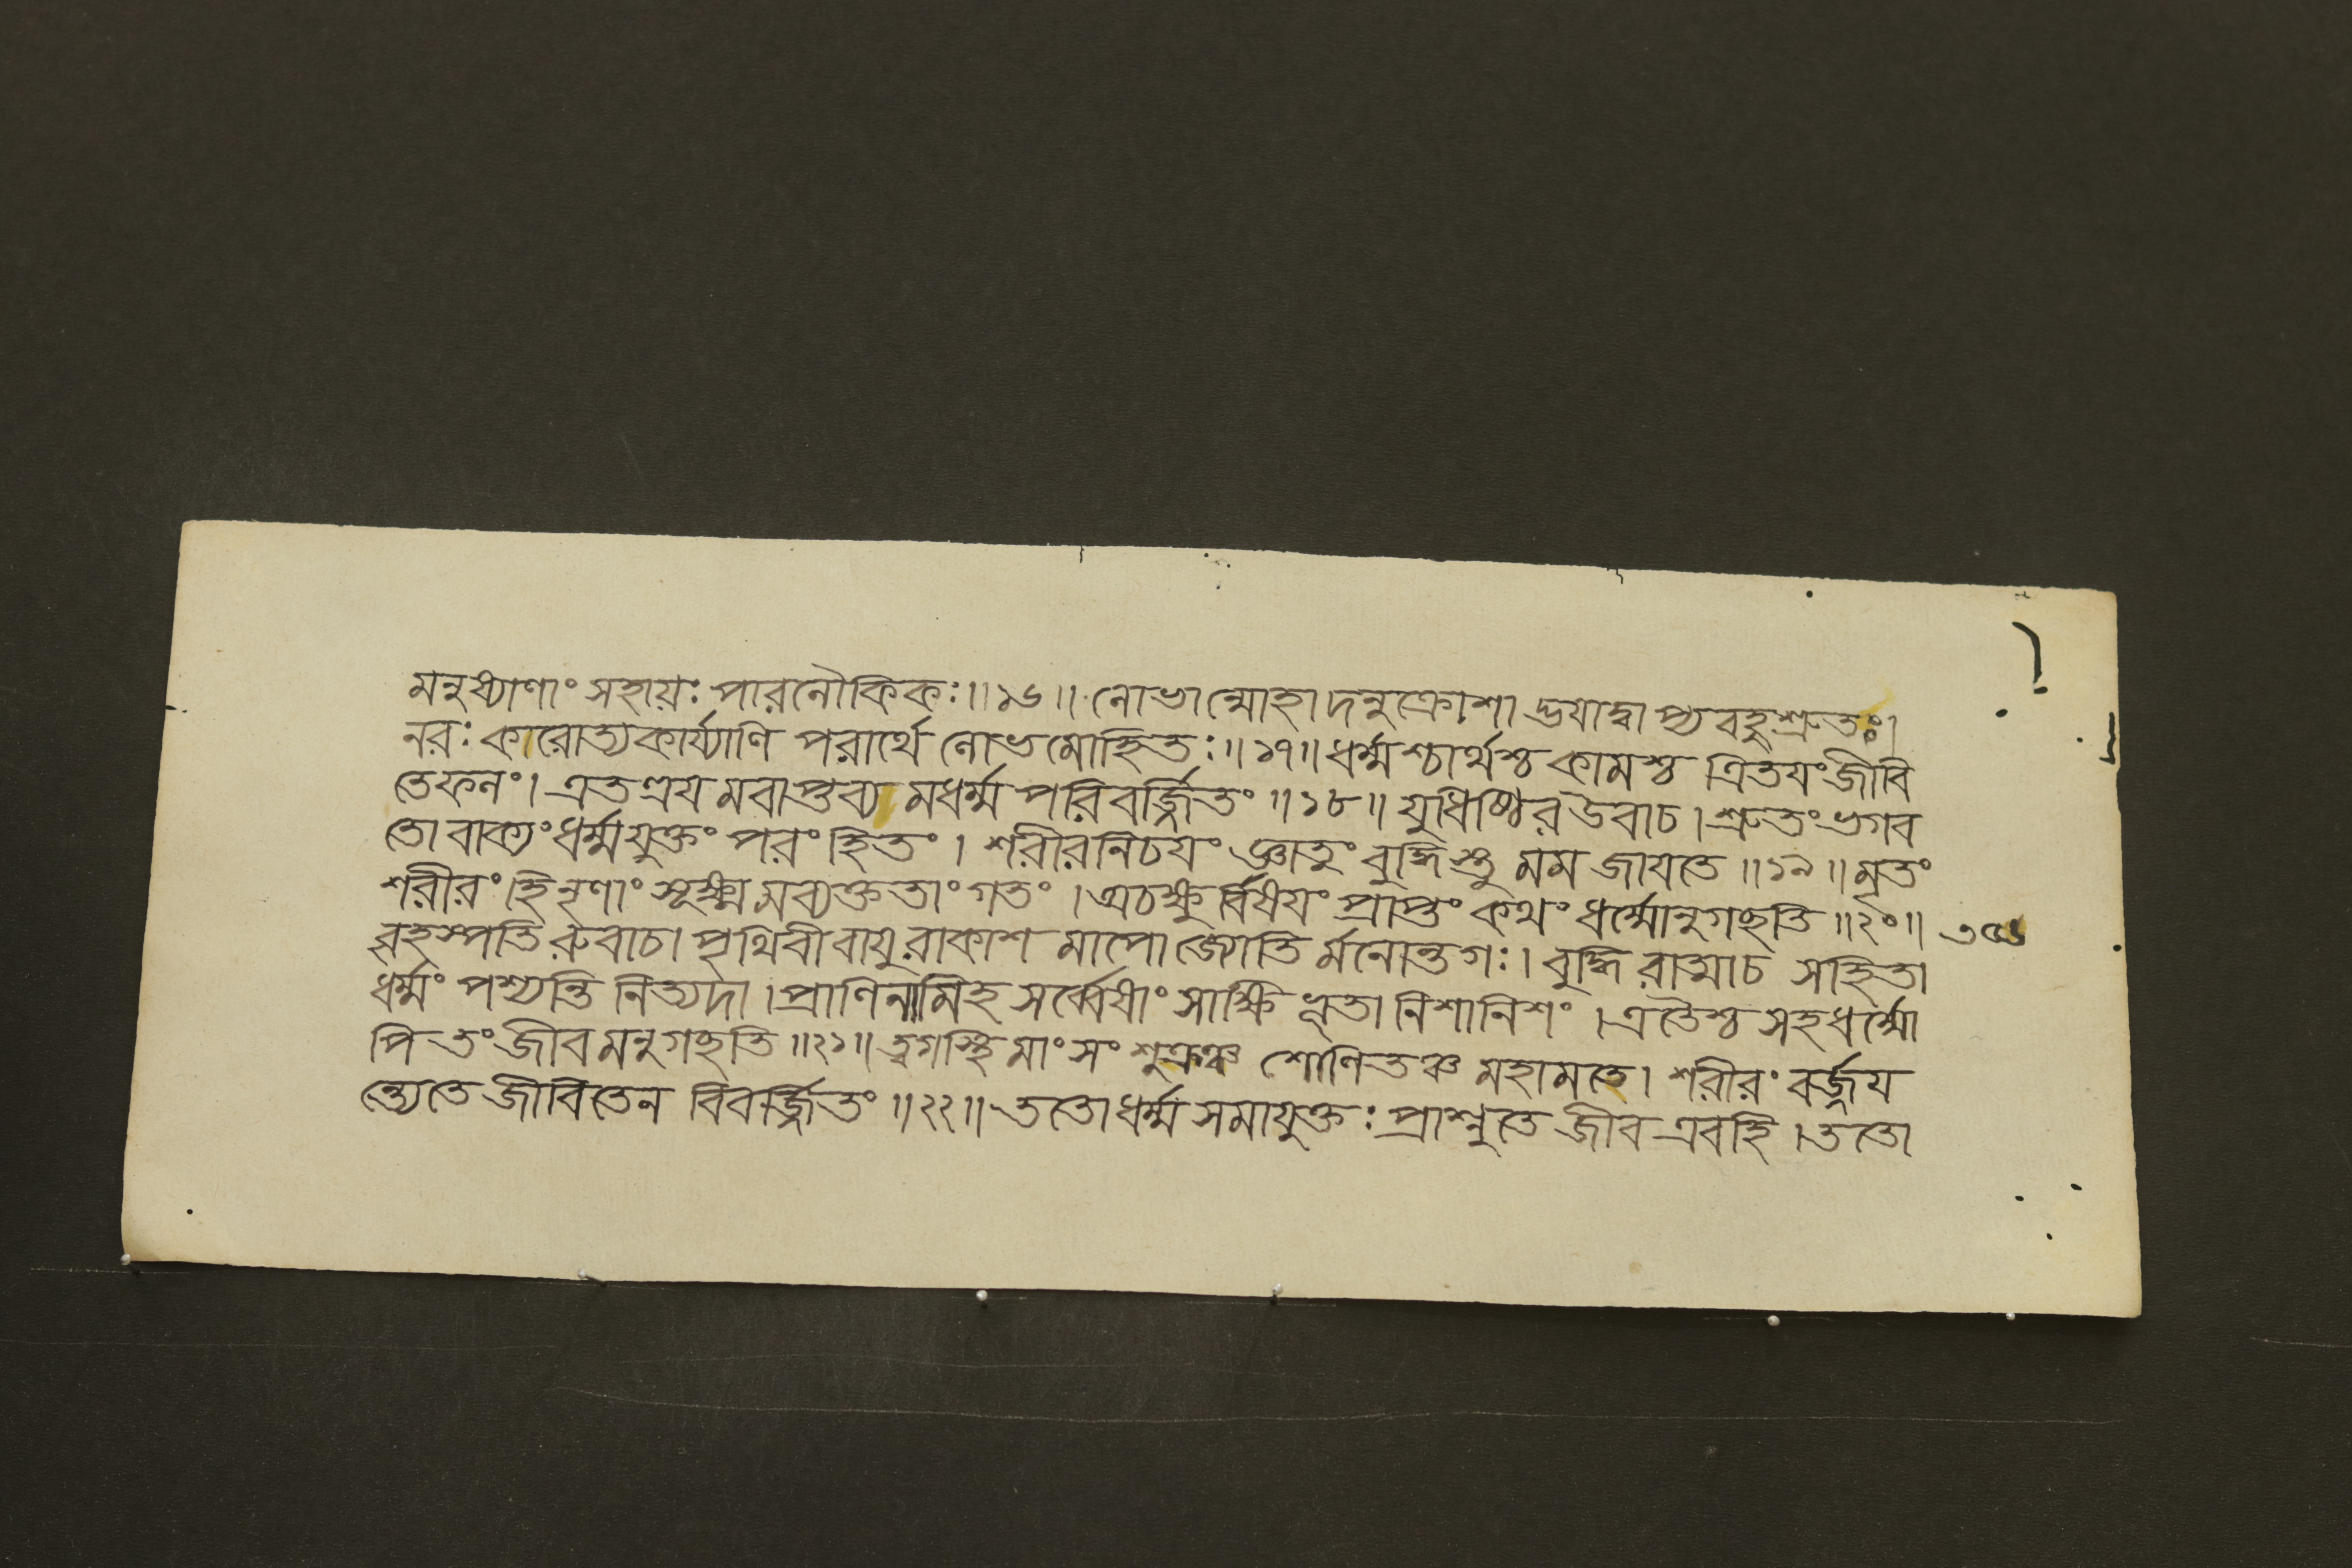 মনুষ্যাণাং সহায়ঃ পারলৌকিকঃ॥১৬॥ লোভান্মোহাদনুক্রোশাদ্ভয়াদ্বাপ্যবহুশ্রুতঃ।
নরঃ কারোত্যকার্য্যাণি পরার্থে লোভমোহিতঃ॥১৭॥ ধর্ম্মশ্চার্থশ্চ কামশ্চ ত্রিতয়ং জীবি
তে ফলং। এতত্রয় মবাপ্তব্য মধর্ম্ম পরিবর্জ্জিতং॥১৮॥ যুধিষ্ঠির উবাচ। শ্রুতং ভগব
তো বাক্যং ধর্ম্মযুক্তং পরং হিতং। শরীরনিচয়ং জ্ঞাতুং বুদ্ধিস্তু মম জায়তে॥১৯॥ মৃতং
শরীরং হি নৃণাং সূক্ষ্ম মব্যক্ততাং গতং। অচক্ষুর্বিষয়ং প্রাপ্তং কথং ধর্ম্মোনুগচ্ছতি॥২০॥
বৃহস্পতি রুবাচ। পৃথিবী বায়ুরাকাশ মাপো জ্যোতি র্মনোন্তগঃ। বুদ্ধি রাত্মাচ সহিতা
ধর্ম্মং পশ্যন্তি নিত্যদা। প্রাণিনামিহ সর্ব্বেষাং সাক্ষিভূতা নিশানিশং। এতৈশ্চ সহধর্ম্মো
পি তং জীব মনুগচ্ছতি॥২১॥ ত্বগস্থি মাংসং শুক্রঞ্চ শোণিতঞ্চ মহামতে। শরীরং বর্জ্জয়
ন্ত্যেতে জীবিতেন বিবর্জ্জিতং॥২২॥ ততো ধর্ম্ম সমাযুক্তঃ প্রাপ্নুতে জীব এবহি। ততো